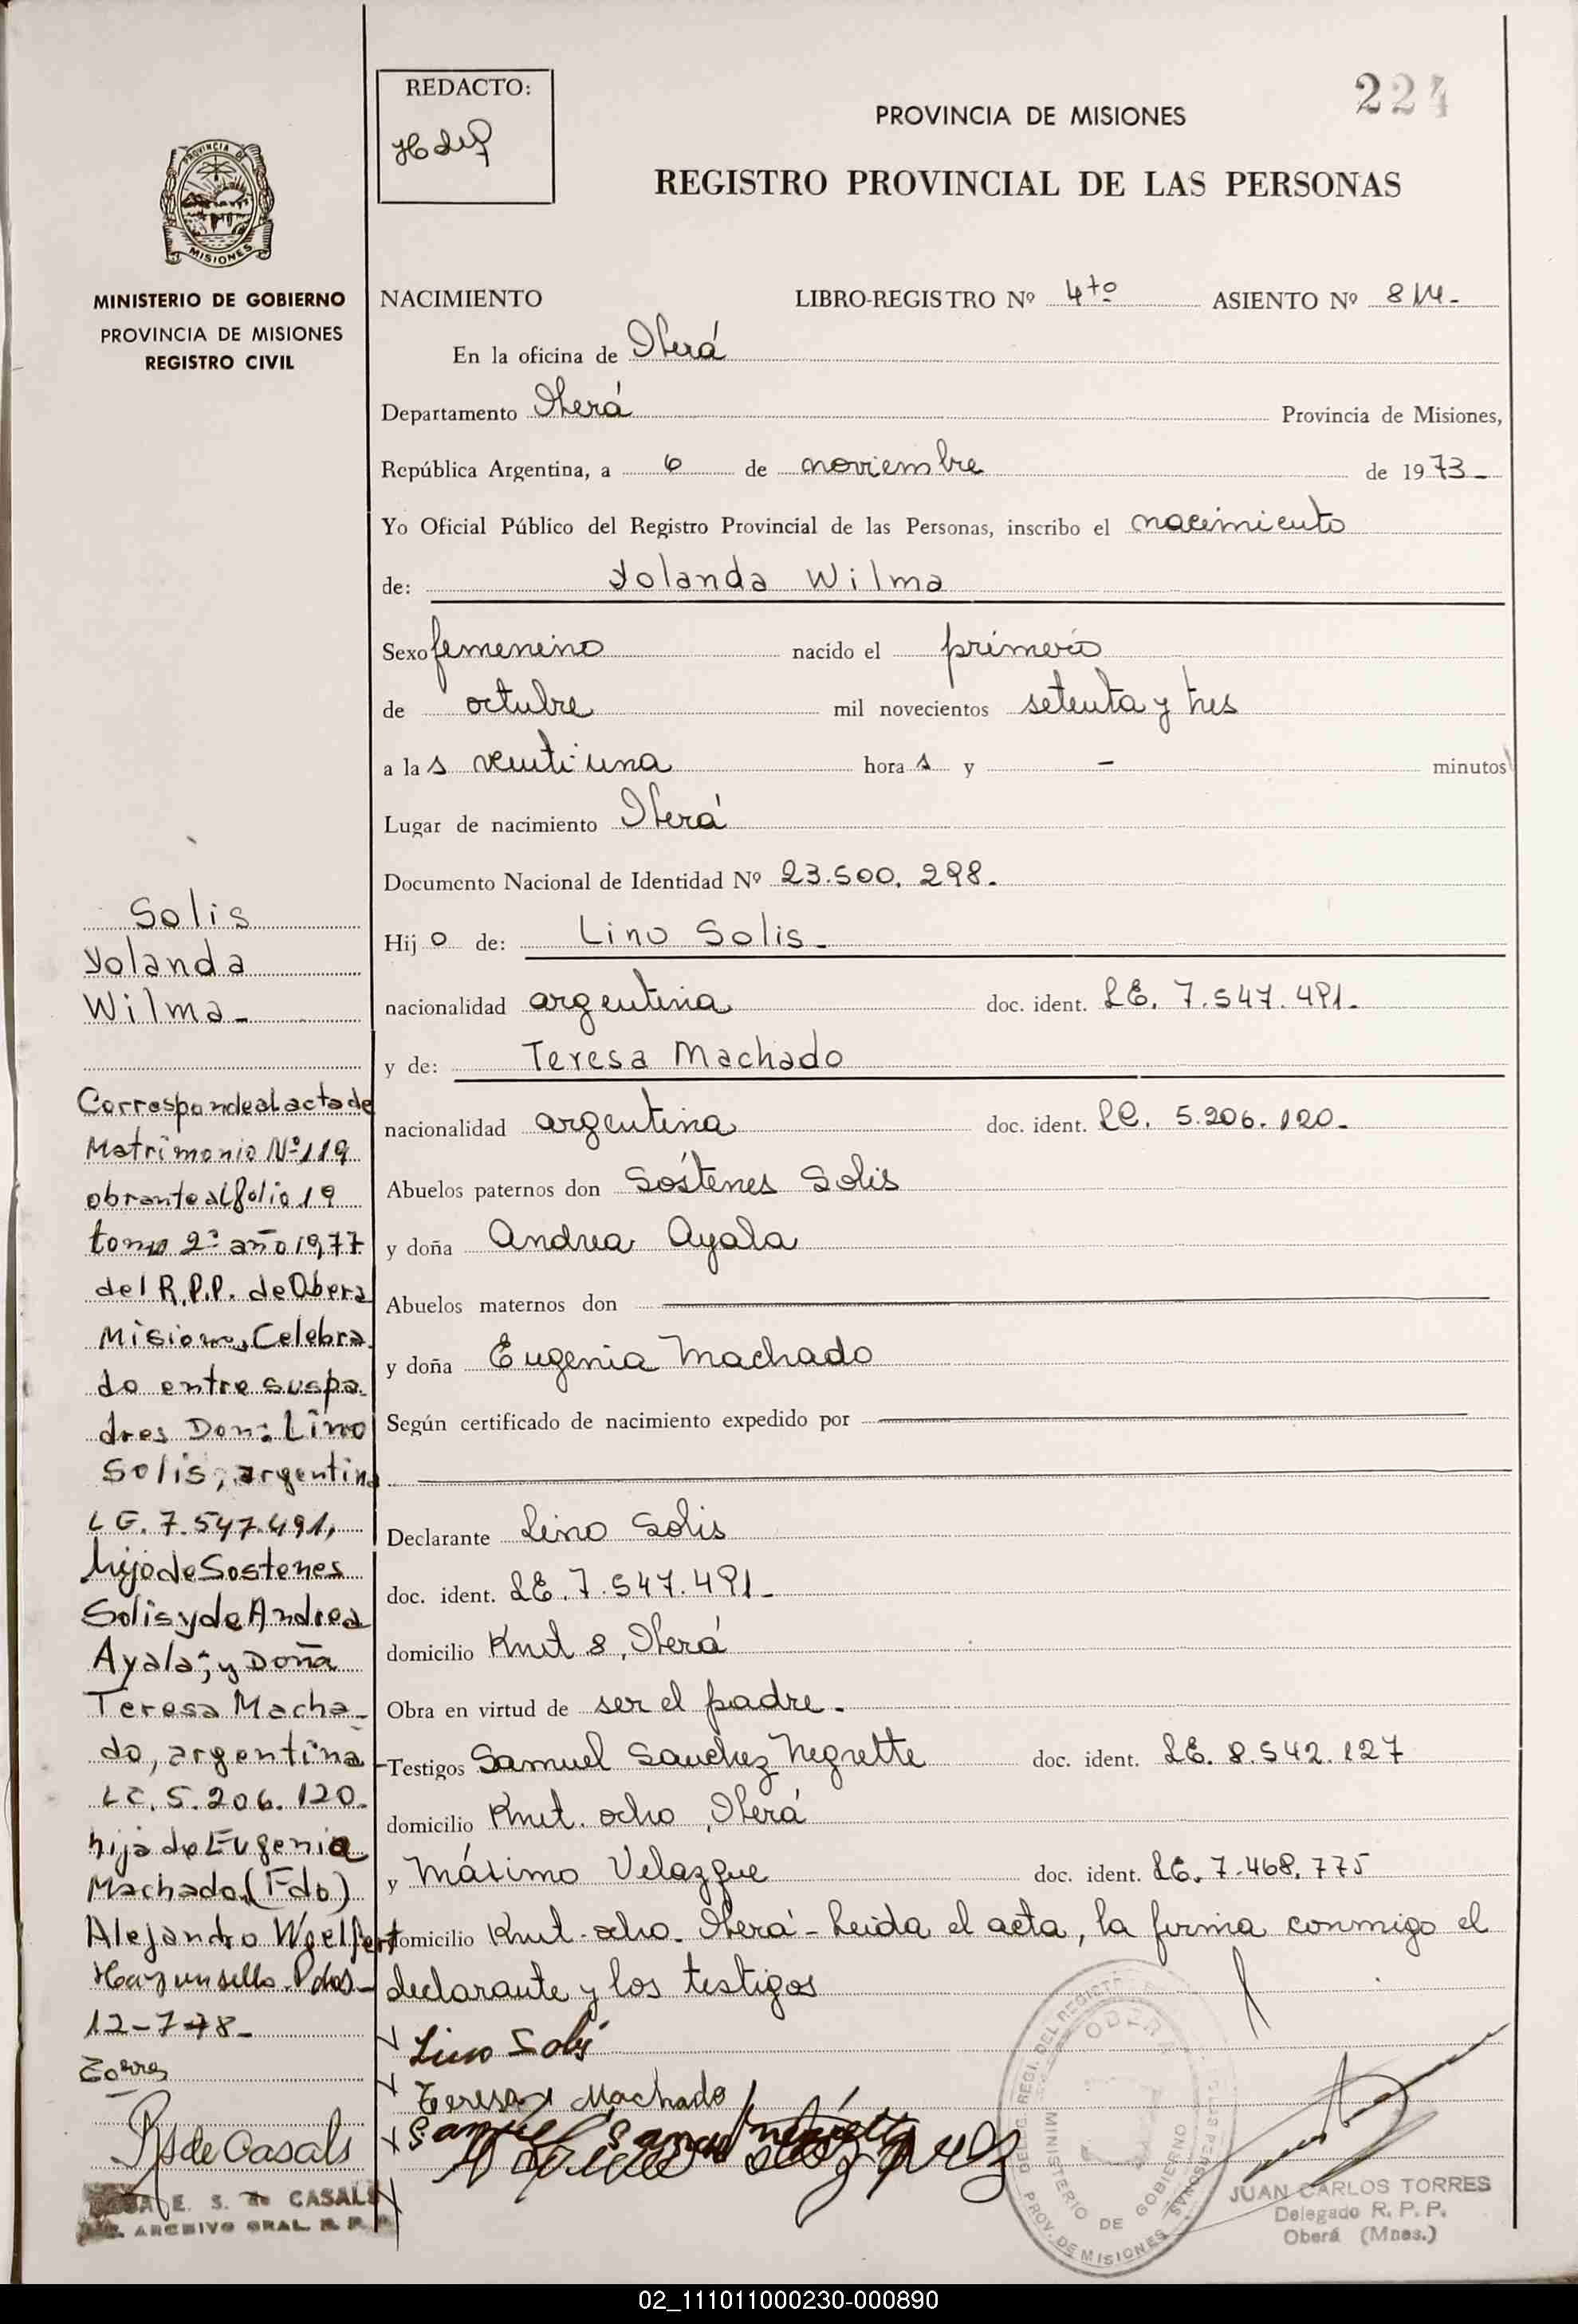 224
REDACTO:
PROVINCIA DE MISIONES
REGISTRO PROVINCIAL DE LAS PERSONAS
PROVINCIA DE
MISIONES
MINISTERIO DE GOBIERNO
PROVINCIA DE MISIONES
REGISTRO CIVIL
NACIMIENTO LIBRO-REGISTRO Nº 4to ASIENTO Nº 814.-
En la oficina de Oberá
Departamento Oberá Provincia de Misiones,
República Argentina, a 6 de noviembre de 1973-
Yo Oficial Público del Registro Provincial de las Personas, inscribo el nacimiento
de: Yolanda Wilma
Sexo femenino nacido el primero
de octubre mil novecientos setenta y tres
a las veintiuna horas y - minutos
Lugar de nacimiento Oberá
Documento Nacional de Identidad Nº 23.500.298.
Hijo de: Lino Solis.-
nacionalidad argentina doc. ident. LE. 7.547.491.
y de: Teresa Machado
nacionalidad argentina doc. ident. LC. 5.206.120.
Abuelos paternos don Sóstenes Solis
y doña Andrea Ayala
Abuelos maternos don
y doña Eugenia Machado
Según certificado de nacimiento expedido por
Declarante Lino Solis
doc. ident. LE. 7.547.491-
domicilio Kmt 8, Oberá
Obra en virtud de ser el padre.
Testigos Samuel Sanchez Negrette doc. ident. LE. 8.542.127
domicilio Kmt. ocho, Oberá
y Máximo Velazque doc. ident. LE. 7.468.775
domicilio Kmt. ocho. Oberá - Leida el acta, la firma conmigo el
declarante y los testigos
Lino Solis
Teresa Machado
Samuel Sanchez Negrette
Solis
Yolanda
Wilma-
Corresponde al acta de
Matrimonio Nº 119
obrante al folio 19
tomo 2º año 1977
del R.P.P. de Obera
Misiones, Celebra
do entre sus pa
dres Don: Lino
Solis, argentino
LE. 7.547.491,
hijo de Sostenes
Solis y de Andrea
Ayala; y Doña
Teresa Macha-
do, argentina
LC. 5.206.120.
hija de Eugenia
Machado (Fdo)
Alejandro Woelfert
Hay un sello. Pdas-
12-7-78-
Torres
de Casals
E. S. de CASALS
ARCHIVO GRAL. R. P. P.
DELEG. REGI. DEL REGISTRO PERSONAS
OBERA
MINISTERIO DE GOBIERNO
PROV. DE MISIONES
JUAN CARLOS TORRES
Delegado R. P. P.
Oberá (Mnes.)
02_111011000230-000890